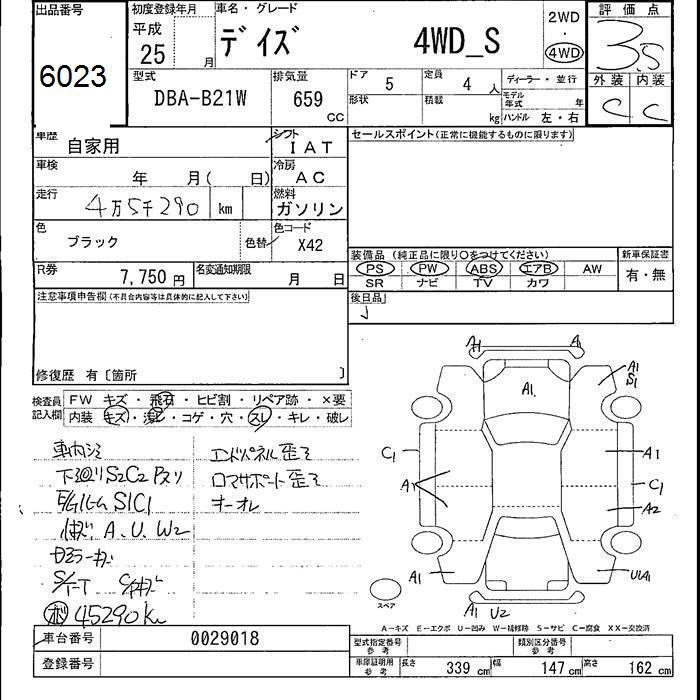 出品番号
6023
初度登録年月
平成
25 月
車名・グレード
デイズ 4WD_S
2WD
・
4WD
評価点
3.5
外装 内装
C C
型式
DBA-B21W
排気量
659
CC
ドア 5
定員 4 人
ディーラー・並行
形状
積載 kg
モデル年式 年
ハンドル 左・右
車歴 自家用
シフト
IAT
セールスポイント(正常に機能するものに限ります)
車検 年 月( 日)
冷房
AC
走行 4万5千290 km
燃料
ガソリン
色 ブラック
色替
色コード
X42
装備品 (純正品に限り○をつけてください)
新車保証書
PS PW ABS エアB AW
有・無
SR ナビ TV カワ
R券 7,750 円
名変通知期限 月 日
後日品
注意事項申告欄(不具合内容等は具体的に記入して下さい)
修復歴 有〔箇所 〕
検査員
記入欄
FW キズ・飛石・ヒビ割・リペア跡・×要
内装 キズ・凹ミ・コゲ・穴・スレ・キレ・破レ
車内シミ
エンドパネル歪ミ
下廻りS2C2 Pスリ
コアサポート歪ミ
オーオレ
S1C1
A.U.W2
45290km
A1 A1
A1.
A1
S1
C1
A1
A1
C1
A2
A1
U1A1
A1 U2
スペア
A－キズ E－エクボ U－凹み W－補修跡 S－サビ C－腐食 XX－交換済
車台番号 0029018
登録番号
型式指定番号
参考
類別区分番号
参考
車庫証明用
参考
長さ 339 cm
幅 147 cm
高さ 162 cm